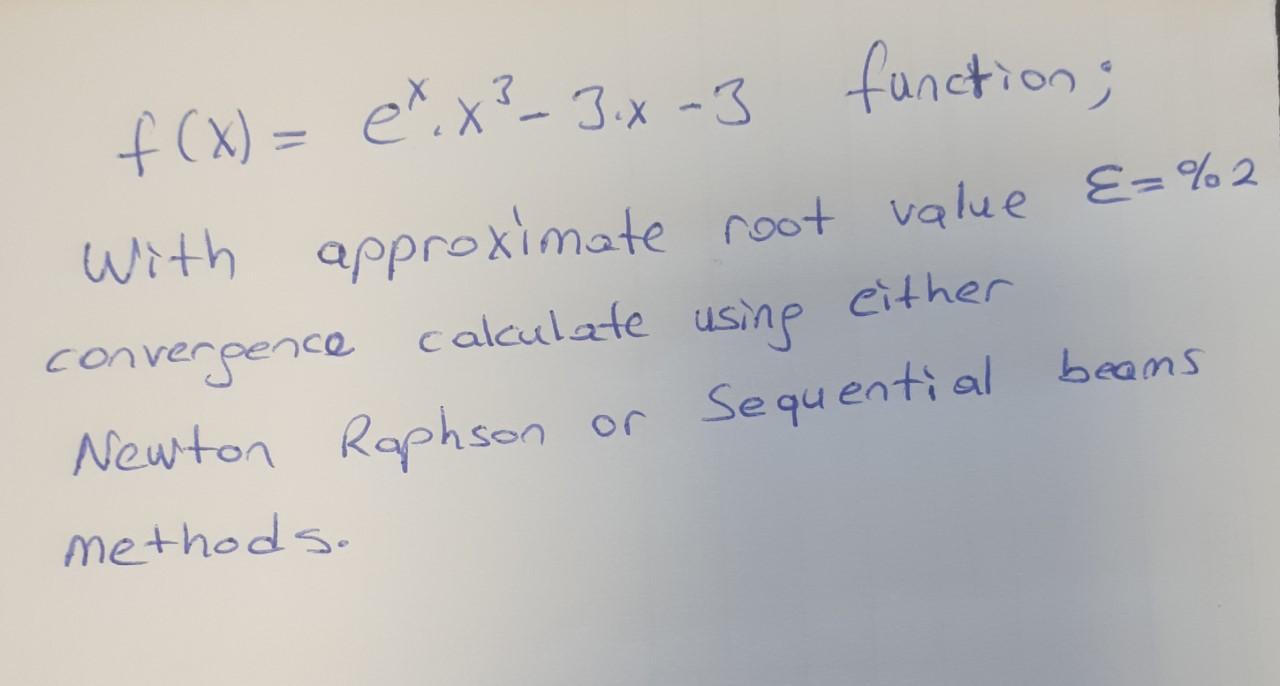 f(x) = eˣ.x³- 3.x -3 function;
With approximate root value ε=%2
convergence calculate using either
Newton Raphson or Sequential beams
methods.